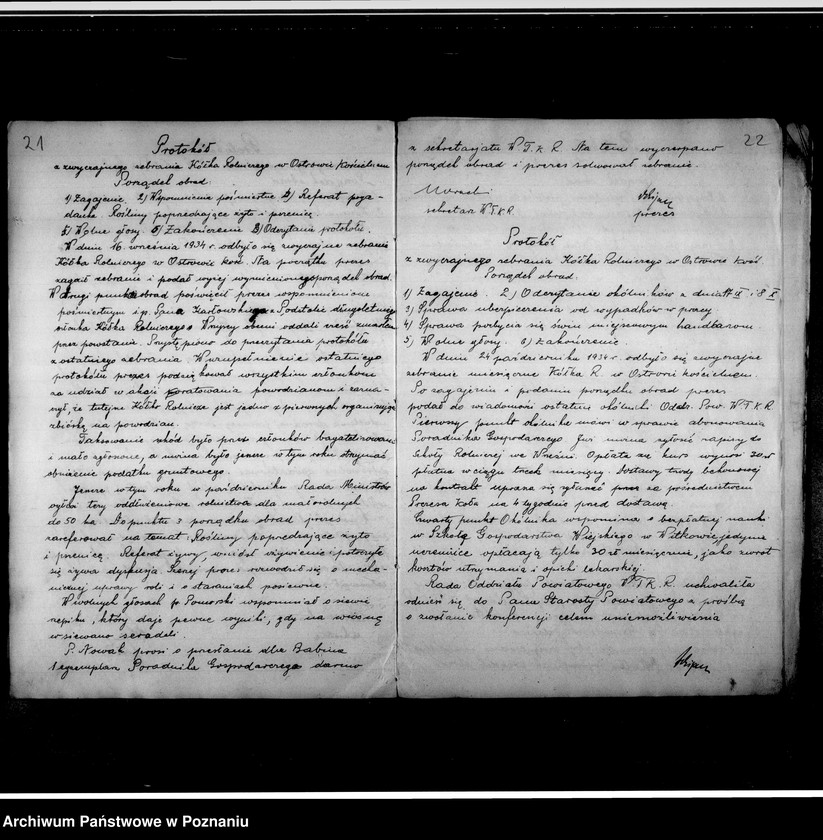 21
Protokół
z zwyczajnego zebrania Kółka Rolniczego w Ostrowie Kościelnem
Porządek obrad
1) Zagajenie. 2) Wspomnienie pośmiertne 3) Referat poga-
danka. Rośliny poprzedzające żyto i pszenicę.
4) Wolne głosy. 5) Zakończenie 6) Odczytanie protokółu.
W dniu 16 września 1934 r. odbyło się zwyczajne zebranie
Kółka Rolniczego w Ostrowie Koś. Na początku prezes
zagaił zebranie i podał wyżej wymieniony porządek obrad.
W drugi punkt obrad poświęcił prezes wspomnieniom
pośmiertnym ś.p. Pana Karłowskiego z Podstolic długoletniego
członka Kółka Rolniczego. Wszyscy obecni oddali cześć zmarłemu
przez powstanie. Przystąpiono do przeczytania protokółu
z ostatniego zebrania. W uzupełnieniu ostatniego
protokółu prezes podziękował wszystkim członkom
za udział w akcji ratowania powodzianom i zazna-
czył, że tutejsze Kółko Rolnicze jest jedno z pierwszych organizując
zbiórkę na powodzian.
Taksowanie szkód było przez członków bagatelizowane
i mało zgłoszone, a można było jeszcze w tym roku otrzymać
obniżenie podatku gruntowego.
Jeszcze w tym roku w październiku Rada Ministrów
wyda tezy oddłużeniowe rolnictwa dla małorolnych
do 50 ha. Do punktu 3 porządku obrad prezes
zareferował na temat: Rośliny poprzedzające żyto
i pszenicę. Referat żywy, wniósł ożywienie i potoczyła
się żywa dyskusja. Szerzej prezes rozwodził się o mecha-
nicznej uprawy roli i o staraniach posiewne.
W wolnych głosach p. Pomorski wspomniał o siewie
rzepiku, który daje pewne wyniki, gdy na wiosnę
wsiewano seradeli.
P. Nowak prosi o przesłanie dla Babina
1 egzemplarz Poradnika Gospodarczego darmo
22
z sekretariatu W.T.K.R. Na tem wyczerpano
porządek obrad i prezes solwował zebranie.
sekretarz W.T.K.R.
prezes
Protokół
z zwyczajnego zebrania Kółka Rolniczego w Ostrowie Koś.
Porządek obrad.
1) Zagajenie. 2) Odczytanie okólników z dnia IX i 8 X
3) Sprawa ubezpieczenia od wypadków w pracy
4) Sprawa pożycia się świń miejscowym handlarzom
5) Wolne głosy. 6) Zakończenie.
W dniu 24 października 1934 r. odbyło się zwyczajne
zebranie miesięczne Kółka R. w Ostrowie kościelnem.
Po zagajeniu i podaniu porządku obrad prezes
podał do wiadomości ostatnie okólniki Oddz. Pow. W.T.K.R.
Pierwszy punkt okólnika mówi w sprawie abonowania
Poradnika Gospodarczego. Już można zgłosić zapisy do
Szkoły Rolniczej we Wrześni. Opłata za kurs wynosi 30 zł
płatne w ciągu trzech miesięcy. Dostawy trzody bekonowej
na kontrakt uprasza się zgłaszać przez za pośrednictwem
Prezesa Koła na 4 tygodnie przed dostawą.
Czwarty punkt Okólnika wspomina o bezpłatnej nauki
w Szkole Gospodarstwa Wiejskiego w Witkowie, jedynie
uczennice opłacają tylko 30 zł miesięcznie, jako zwrot
kosztów utrzymania i opieki lekarskiej.
Rada Oddziału Powiatowego W.T.K.R. uchwaliła
odnieść się do Pana Starosty Powiatowego z prośbą
o zwołanie konferencji celem uniemożliwienia
Archiwum Państwowe w Poznaniu